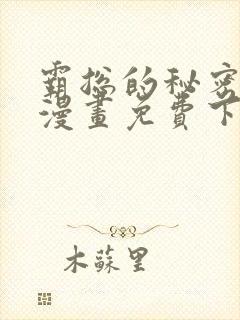 霸总的秘密
漫畫免費下
木蘇里